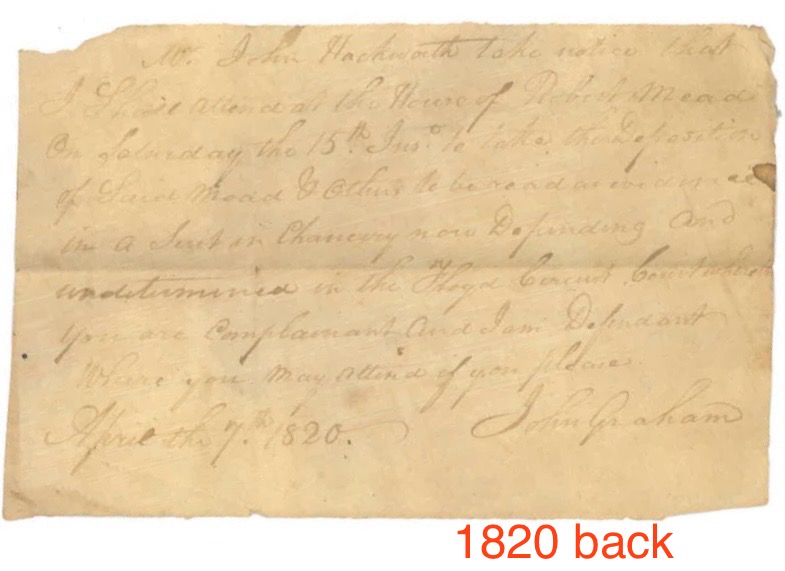 Mr. John Hackworth take notice that
I Shall attend at the House of Robert Mead
On Saturday the 15th. Inst. to take the Deposition
of Said Mead & Others to be read as evidence
in a Suit in Chancery now Depending And
undetermined in the Floyd Circuit Court wherein
you are Complainant And I am Defendant
Where you may attend if you please.
April the 7th. 1820. John Graham
1820 back